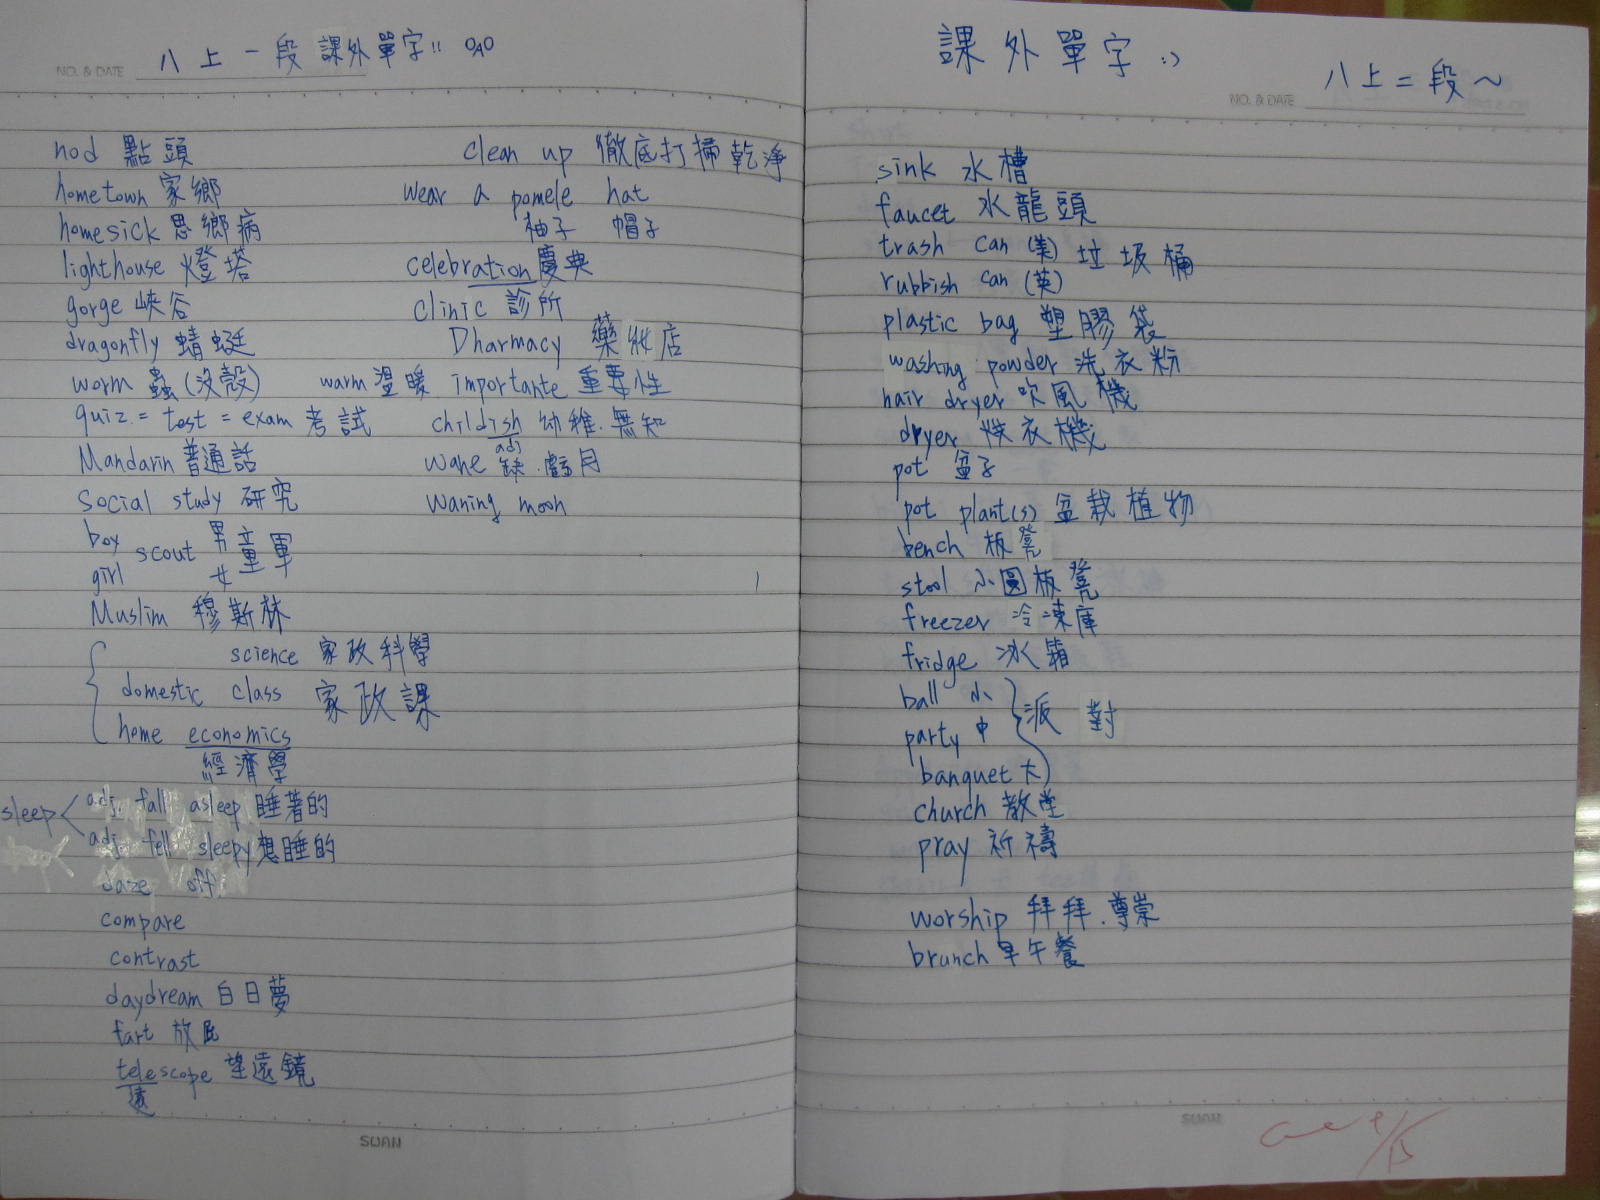 八上一段 課外單字!! OAO
NO. & DATE
nod 點頭
hometown 家鄉
homesick 思鄉病
lighthouse 燈塔
gorge 峽谷
dragonfly 蜻蜓
worm 蟲(沒殼) warm 溫暖
quiz = test = exam 考試
Mandarin 普通話
social study 研究
boy 男
scout 童軍
girl 女
Muslim 穆斯林
science 家政科學
domestic class 家政課
home economics
經濟學
sleep < adj. fall asleep 睡著的
adj. fell sleepy 想睡的
daze off
compare
contrast
daydream 白日夢
fart 放屁
telescope 望遠鏡
遠
clean up 徹底打掃乾淨
wear a pomele hat
柚子 帽子
celebration 慶典
clinic 診所
Dharmacy 藥妝店
importante 重要性
childish 幼稚.無知
adj
wane 缺.虧月
waning moon
SUAN
課外單字 :)
八上二段~
NO. & DATE
sink 水槽
faucet 水龍頭
trash can (美) 垃圾桶
rubbish can (英)
plastic bag 塑膠袋
washing powder 洗衣粉
hair dryer 吹風機
dryer 烘衣機
pot 盆子
pot plant(s) 盆栽植物
bench 板凳
stool 小圓板凳
freezer 冷凍庫
fridge 冰箱
ball 小
party 中 } 派對
banquet 大
church 教堂
pray 祈禱
worship 拜拜.尊崇
brunch 早午餐
SUAN